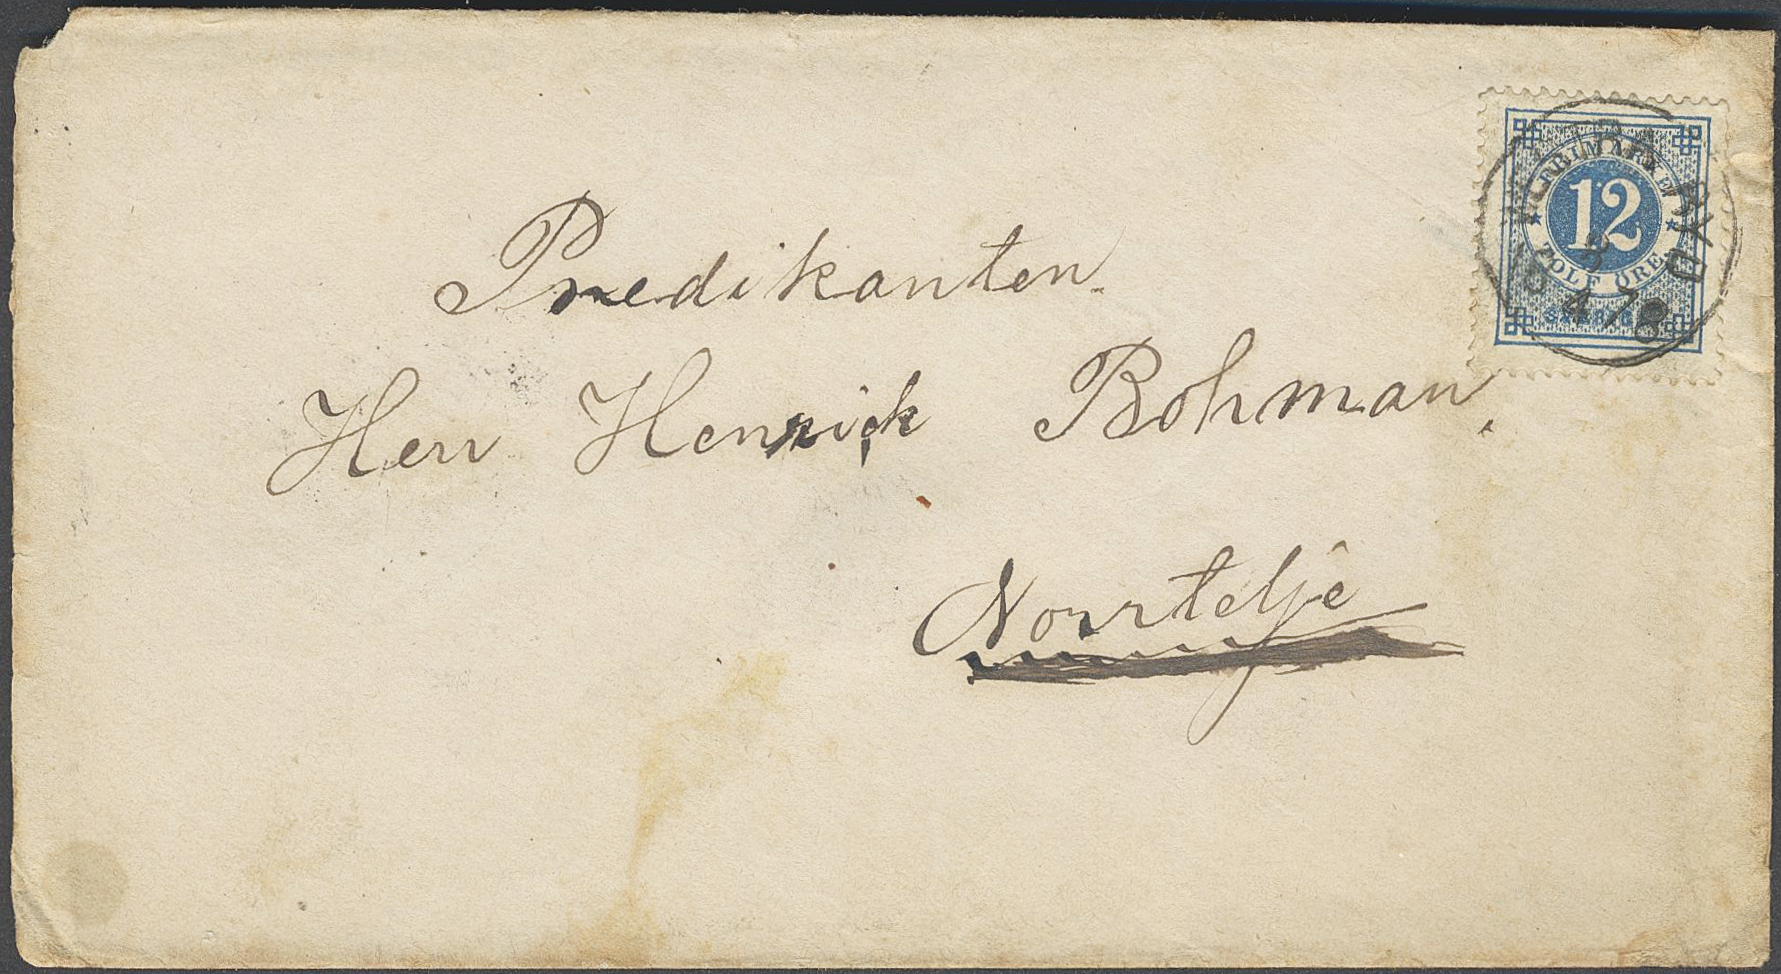 Predikanten.
Herr Henrick Bohman.
Norrtelje
FRIMÄRKE
12
TOLF ÖRE
SVERIGE
RYD
4 78